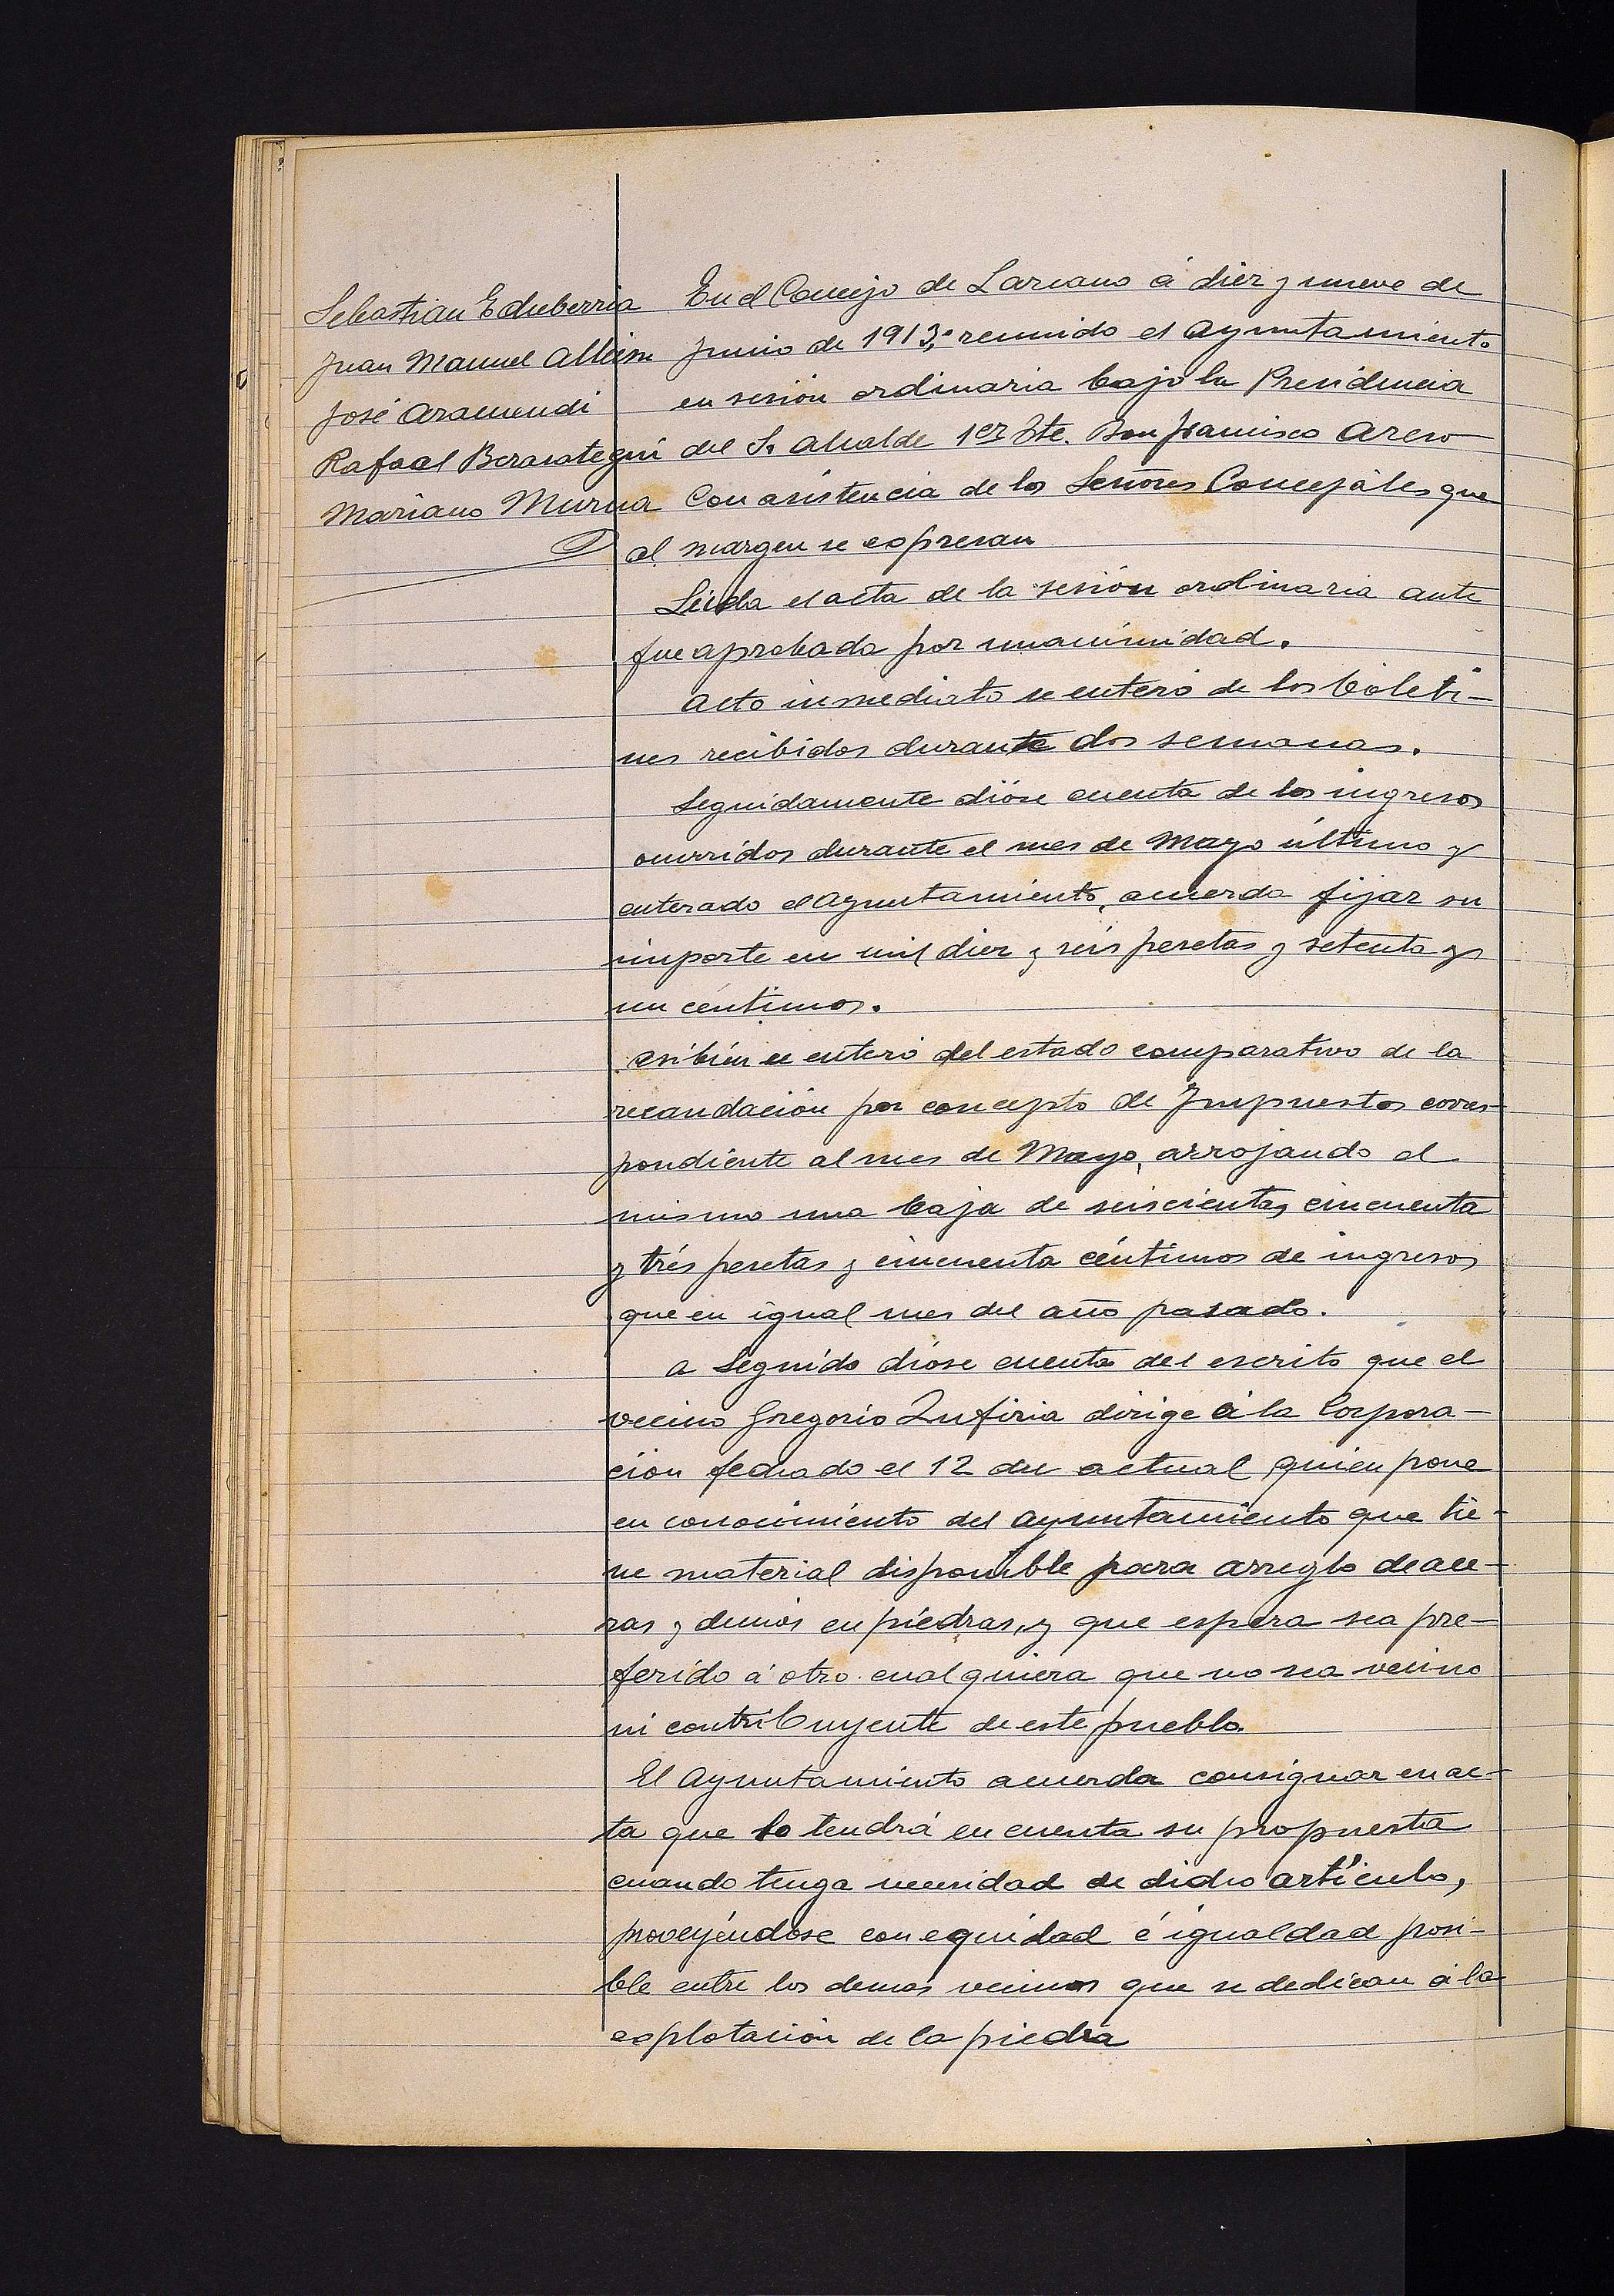 Sebastian Echeberria
Juan Manuel Albisu
José Aramendi
Rafael Berasategui
Mariano Murua
En el Concejo de Lazcano á diez y nueve de
Junio de 1913, reunido el Ayuntamiento
en sesión ordinaria bajo la Presidencia
del Sr. Alcalde 1er Tte. Don Francisco Areso
Con asistencia de los Señores Concejáles que
al margen se expresan
Leida el acta de la sesión ordinaria ante
fue aprobada por unanimidad.
Acto inmediato se enteró de los boleti-
nes recibidos durante dos semanas.
Seguidamente dióse cuenta de los ingresos
ocurridos durante el mes de Mayo último y
enterado el Ayuntamiento, acuerda fijar su
importe en mil diez y seis pesetas y setenta y
un céntimos.
Asibien se enteró del estado comparativo de la
recaudación por concepto de Impuestos corres-
pondiente al mes de Mayo, arrojando el
mismo una baja de seiscientas cincuenta
y trés pesetas y cincuenta céntimos de ingresos
que en igual mes del año pasado.
A seguido dióse cuenta del escrito que el
vecino Gregorio Zufiria dirige á la Corpora-
ción fechado el 12 del actual quien pone
en conocimiento del Ayuntamiento que tie-
ne material disponible para arreglo de ace-
ras y demás en piedras, y que espera sea pre-
ferido á otro cualquiera que no sea vecino
ni contribuyente de este pueblo.
El Ayuntamiento acuerda consignar en ac-
ta que lo tendrá en cuenta su propuesta
cuando tenga necesidad de dicho artículo,
proveyéndose con equidad é igualdad posi-
ble entre los demas vecinos que se dedican á la
explotación de la piedra